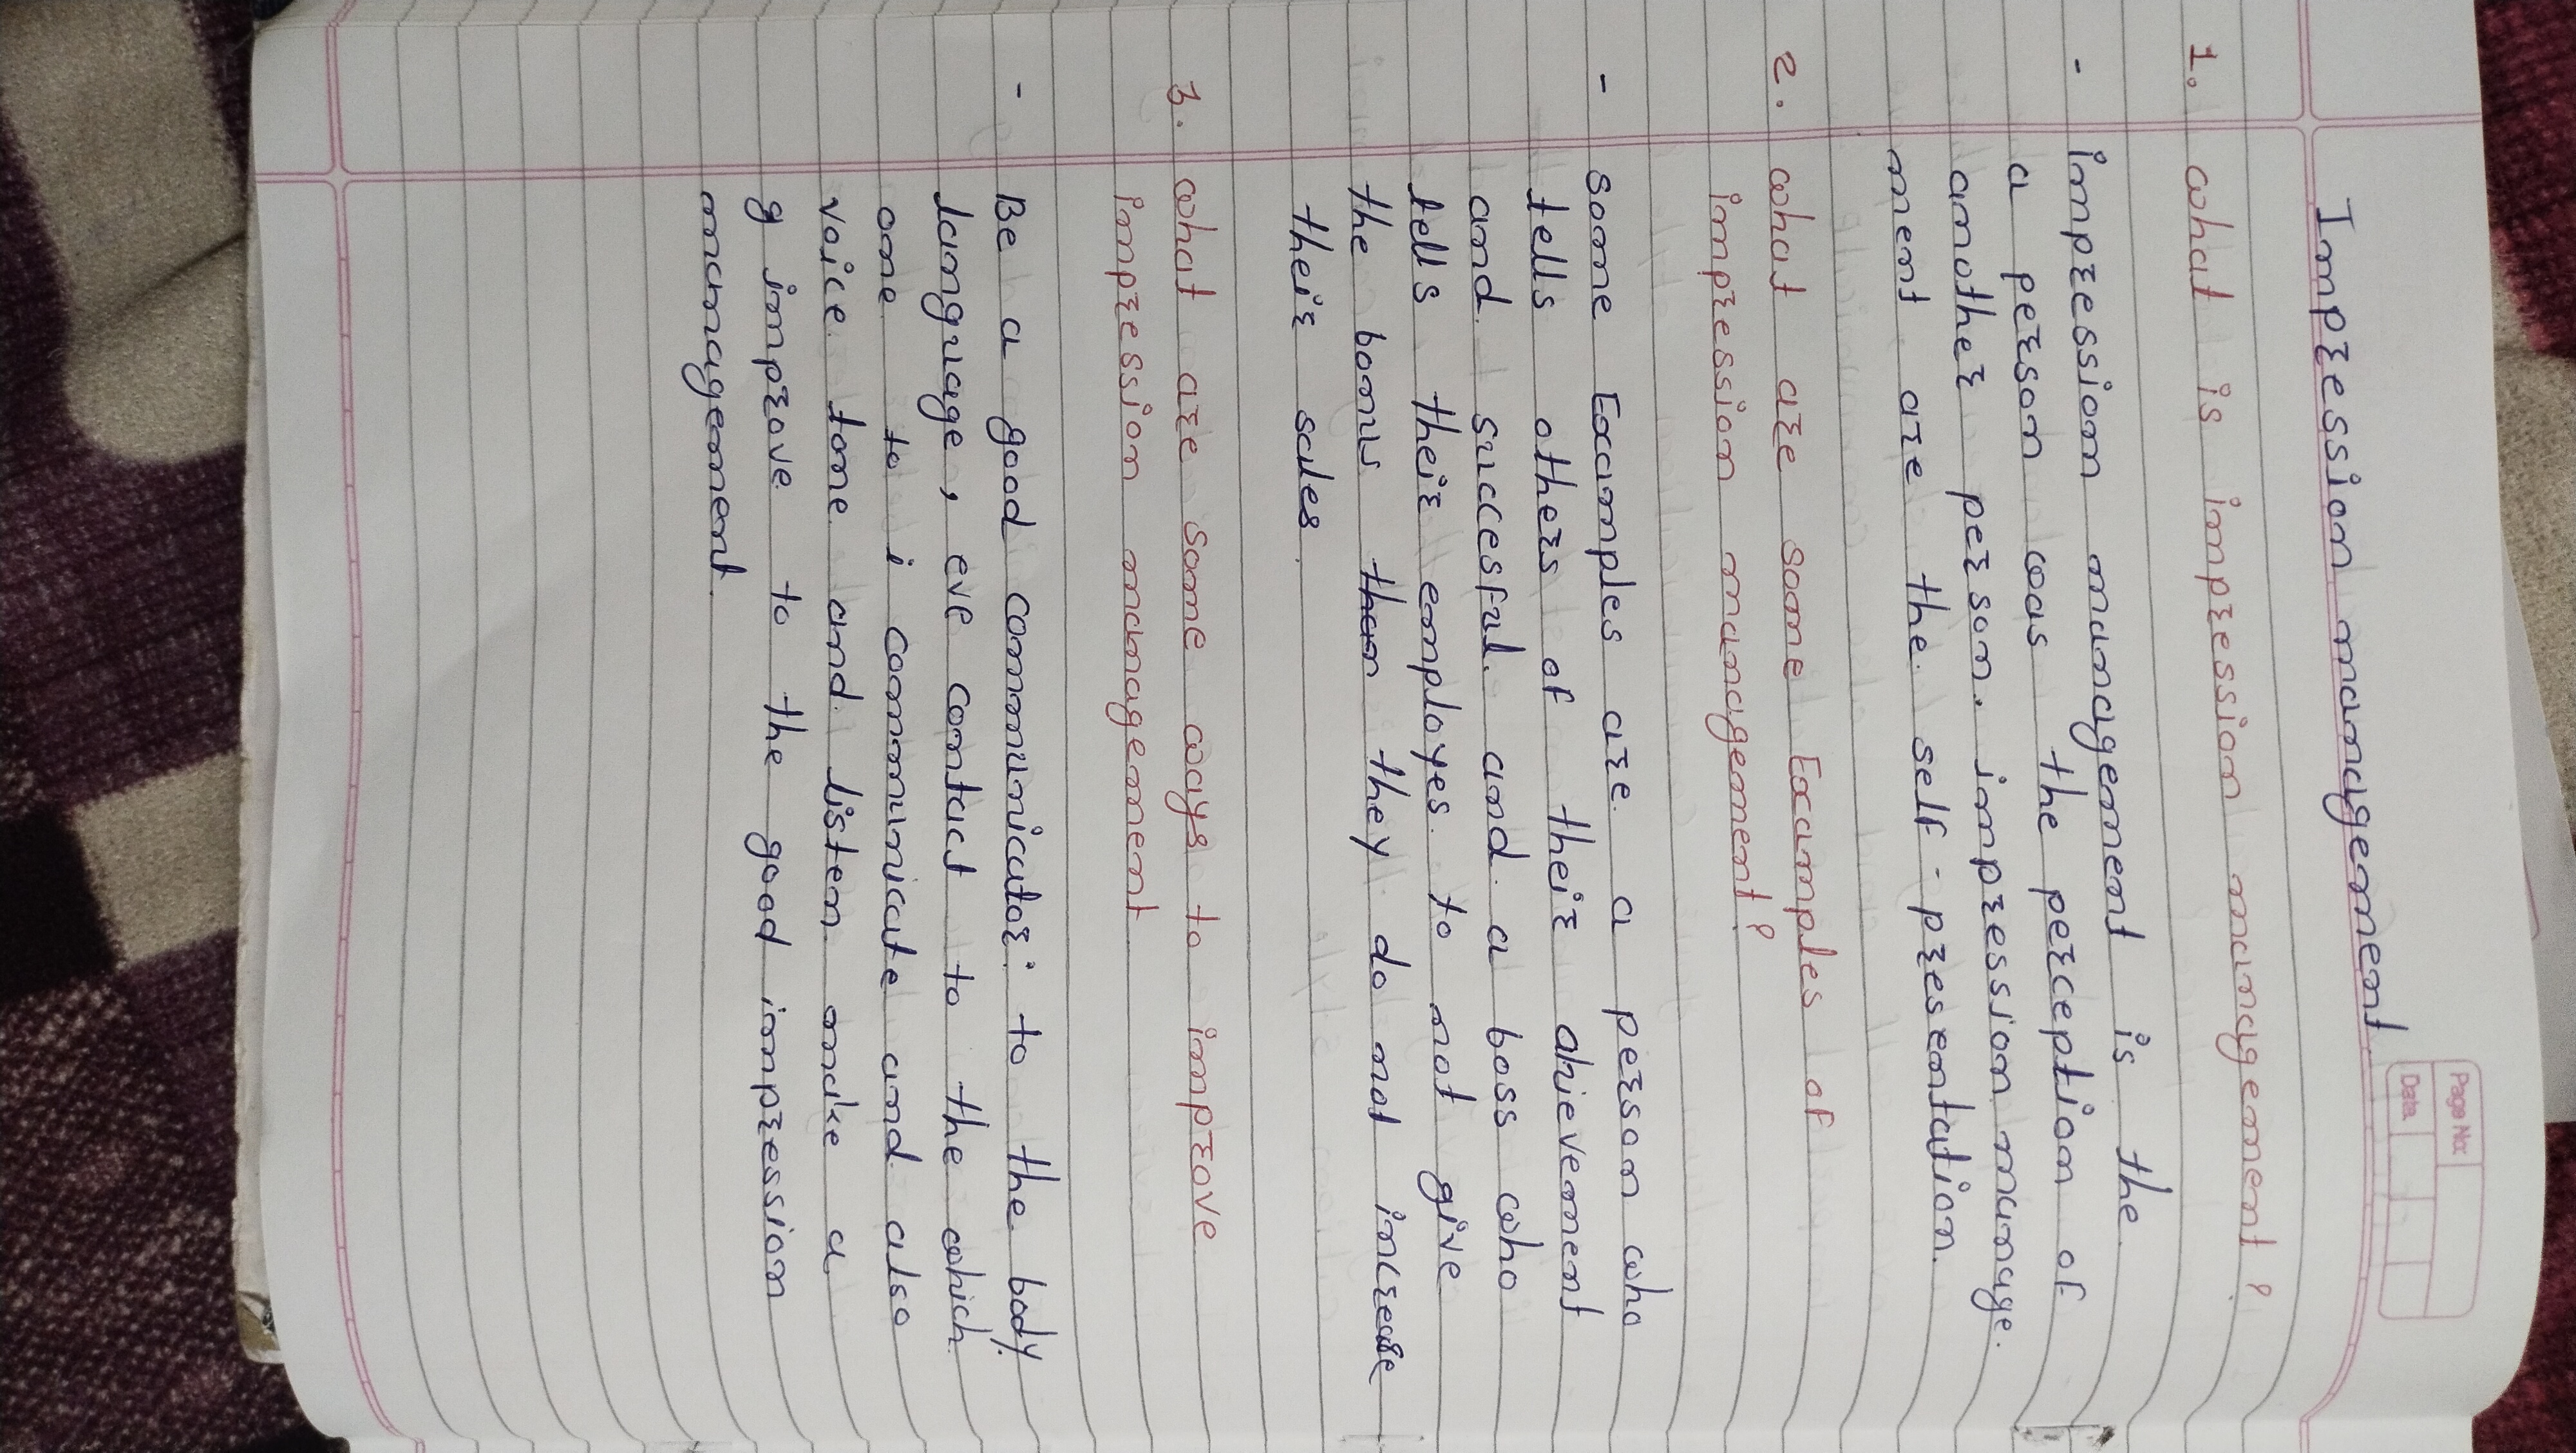 Page No:
Date
Impression management
1. what is impression management?
- impression management is the
a person was the perception of
another person. impression manage.
ment are the self-presentation.
2. what are some Examples of
impression management?
- some Examples are a person who
tells others of their ahievement
and succesful and a boss who
tells their employes to not give
the bonus they do not increse
their sales.
3. what are some ways to improve
impression management
- Be a good communicator to the body
language, eve contact to the which
one to i communicate and also
voice tone and listen make a
g improve to the good impression
management.